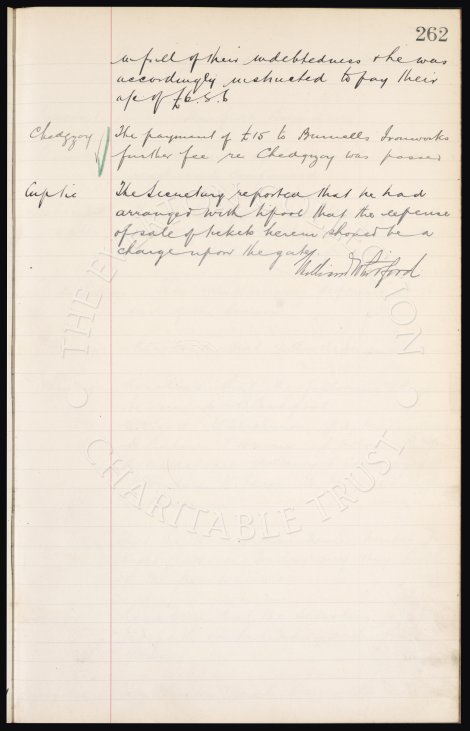 262
in full of their indebtedness & he was
accordingly instructed to pay their
a/c of £6.8.6
Chedgzoy The payment of £15 to Burnells Ironworks
further fee re Chedgzoy was passed
Cup tie The Secretary reported that he had
arranged with L'pool that the expense
of sale of tickets herein should be a
charge upon the gate.
THE EVERTON COLLECTION
CHARITABLE TRUST